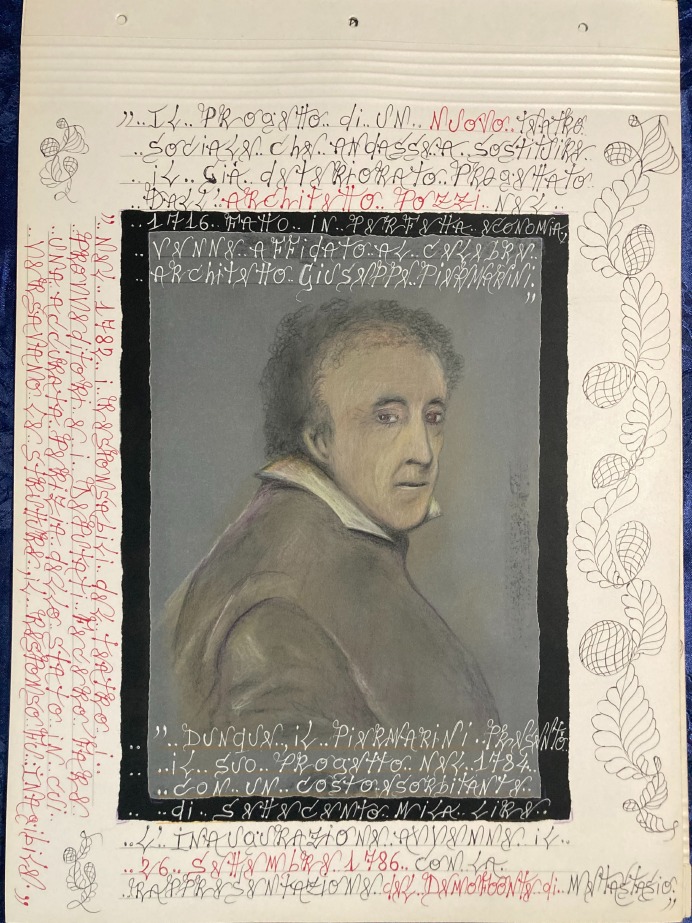 „.. IL.. PROgEttO.. di.. UN.. NUOVO.. tEAtRO
.. SOCIALE.. ChE.. ANDASSE.. A.. SOStItUIRE
.. iL.. GIÀ.. dEtERIORAtO.. PROgEttAtO
.. DALL'.. ARChitEttO.. POZZI.. NEL..
.. 1716.. FAttO.. iN.. PERFEttA.. ECONOMIA,
VENNE.. AFFidAtO.. AL.. CELEbRE..
ARChitEttO.. GIUSEPPE.. PIERMARINI.
”
„ NEL.. 1782.. i.. RESPONSAbiLi.. dEL.. tEAtRO.. i..
PROVVEditORi.. E.. i..
UNA.. ACCURAtA.. PERIZIA.. dELLO.. StAtO.. IN.. CUI..
VERSAVANO.. LE.. StRUttURE.. iL.. RESPONSO.. FU:.. INAgibiLE „
.. ”.. DUNQUE,.. iL.. PIERMARINI.. PRESENtÒ
.. iL.. SUO.. PROgEttO.. NEL.. 1784..
.. CON.. UN.. COStO.. ESORbitANtE..
.. di.. SEttECENtO.. MiLA.. LIRE..
.. L'.. INAUgURAZIONE.. AVVENNE.. iL..
.. 26.. SEttEMbRE.. 1786.. CON.. LA
RAPPRESENtAZIONE.. dEL.. DEMOFOONtE.. di.. MEtAStASIO.
”